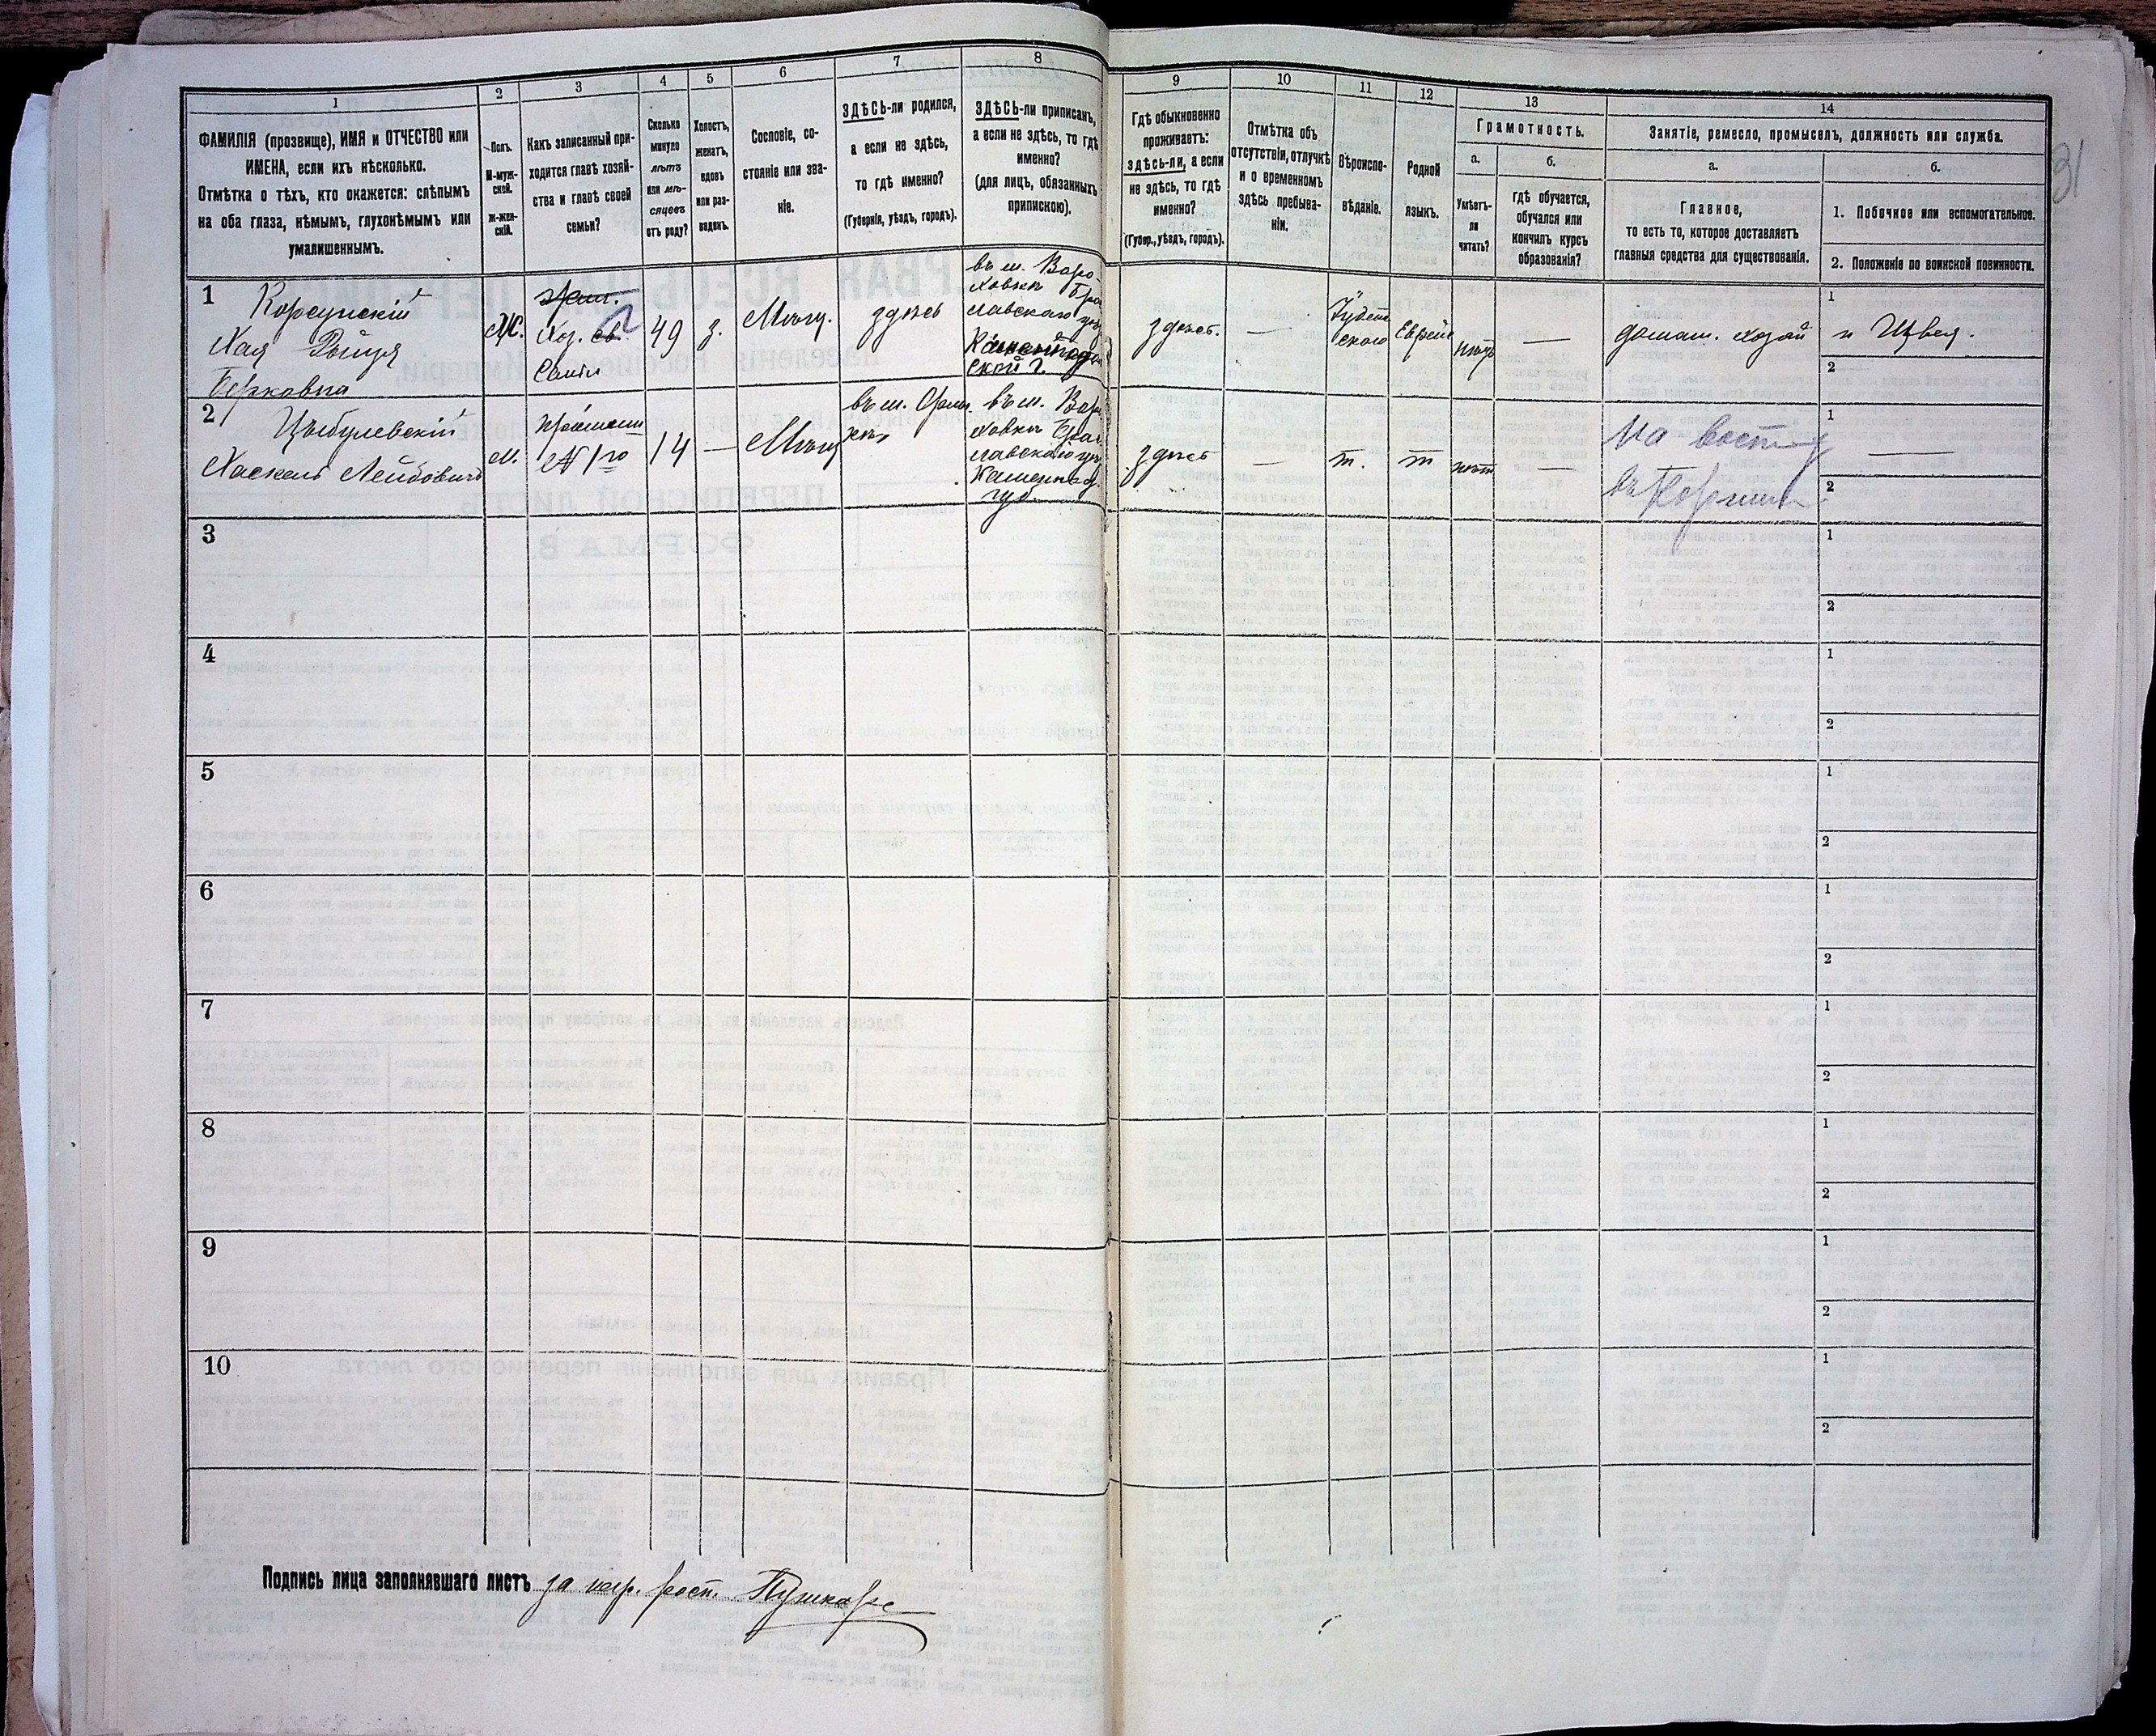 1
ФАМИЛІЯ (прозвище), ИМЯ и ОТЧЕСТВО или
ИМЕНА, если ихъ нѣсколько.
Отмѣтка о тѣхъ, кто окажется: слѣпымъ
на оба глаза, нѣмымъ, глухонѣмымъ или
умалишеннымъ.
2
Полъ.
М-муж-
ской.
ж-жен-
скій.
3
Какъ записанный при-
ходится главѣ хозяй-
ства и главѣ своей
семьи?
4
Сколько
минуло
лѣтъ
или мѣ-
сяцевъ
отъ роду?
5
Холостъ,
женатъ,
вдовъ
или раз-
веденъ.
6
Сословіе, со-
стояніе или зва-
ніе.
7
ЗДѢСЬ-ли родился,
а если не здѣсь,
то гдѣ именно?
(Губернія, уѣздъ, городъ).
8
ЗДѢСЬ-ли приписанъ,
а если не здѣсь, то гдѣ
именно?
(для лицъ, обязанныхъ
припискою).
9
Гдѣ обыкновенно
проживаетъ:
здѣсь-ли, а если
не здѣсь, то гдѣ
именно?
(Губер., уѣздъ, городъ).
10
Отмѣтка объ
отсутствіи, отлучкѣ
и о временномъ
здѣсь пребыва-
ніи.
11
Вѣроиспо-
вѣданіе.
12
Родной
языкъ.
13
Грамотность.
а.
Умѣетъ-
ли
читать?
б.
гдѣ обучается,
обучался или
кончилъ курсъ
образованія?
14
Занятіе, ремесло, промыселъ, должность или служба.
а.
Главное,
то есть то, которое доставляетъ
главныя средства для существованія.
б.
1. Побочное или вспомогательное.
2. Положеніе по воинской повинности.
31
1
Корсунскій
Хая
Берковна
Ж.
Хоз.
Семьи
49
з.
Мѣщ.
здѣсь
въ м. Воро
ховкѣ Бра
лавскаго
ской г.
здѣсь.
—
Іудей
скаго
Еврей
нѣтъ
—
домаш. хозяй
1
и Швея.
2
2
Цыбулевскій
Хаскель Лейбовичъ
М.
№ 1го
14
—
Мѣщ
въ м.
въ м. Воро
ховкѣ Брац
лавскаго
Каменецъ
губ.
здѣсь
—
т.
т
нѣт
—
1
—
2
3
1
2
4
1
2
5
1
2
6
1
2
7
1
2
8
1
2
9
1
2
10
1
2
Подпись лица заполнявшаго листъ за негр. росп. Пушкарь